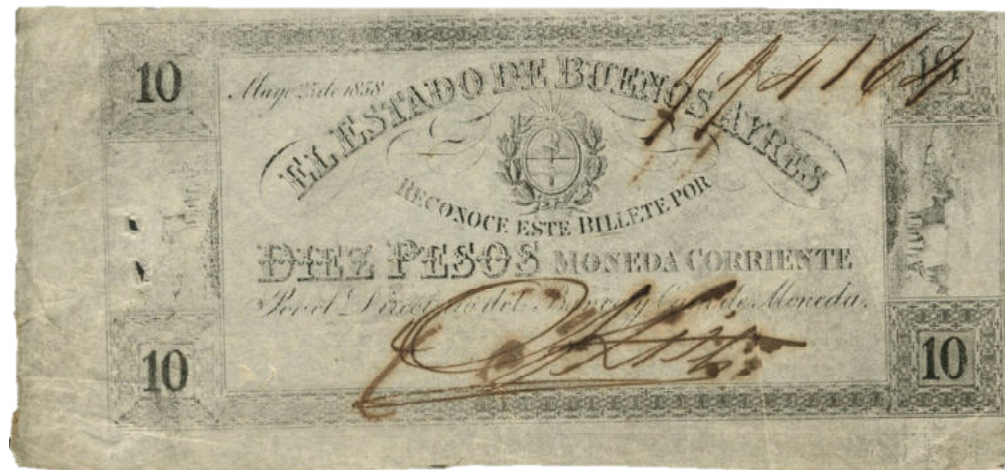 10
10
Mayo 25 de 1858
EL ESTADO DE BUENOS AYRES
RECONOCE ESTE BILLETE POR
DIEZ PESOS MONEDA CORRIENTE
Por el Directorio del Banco y Casa de Moneda.
10
10